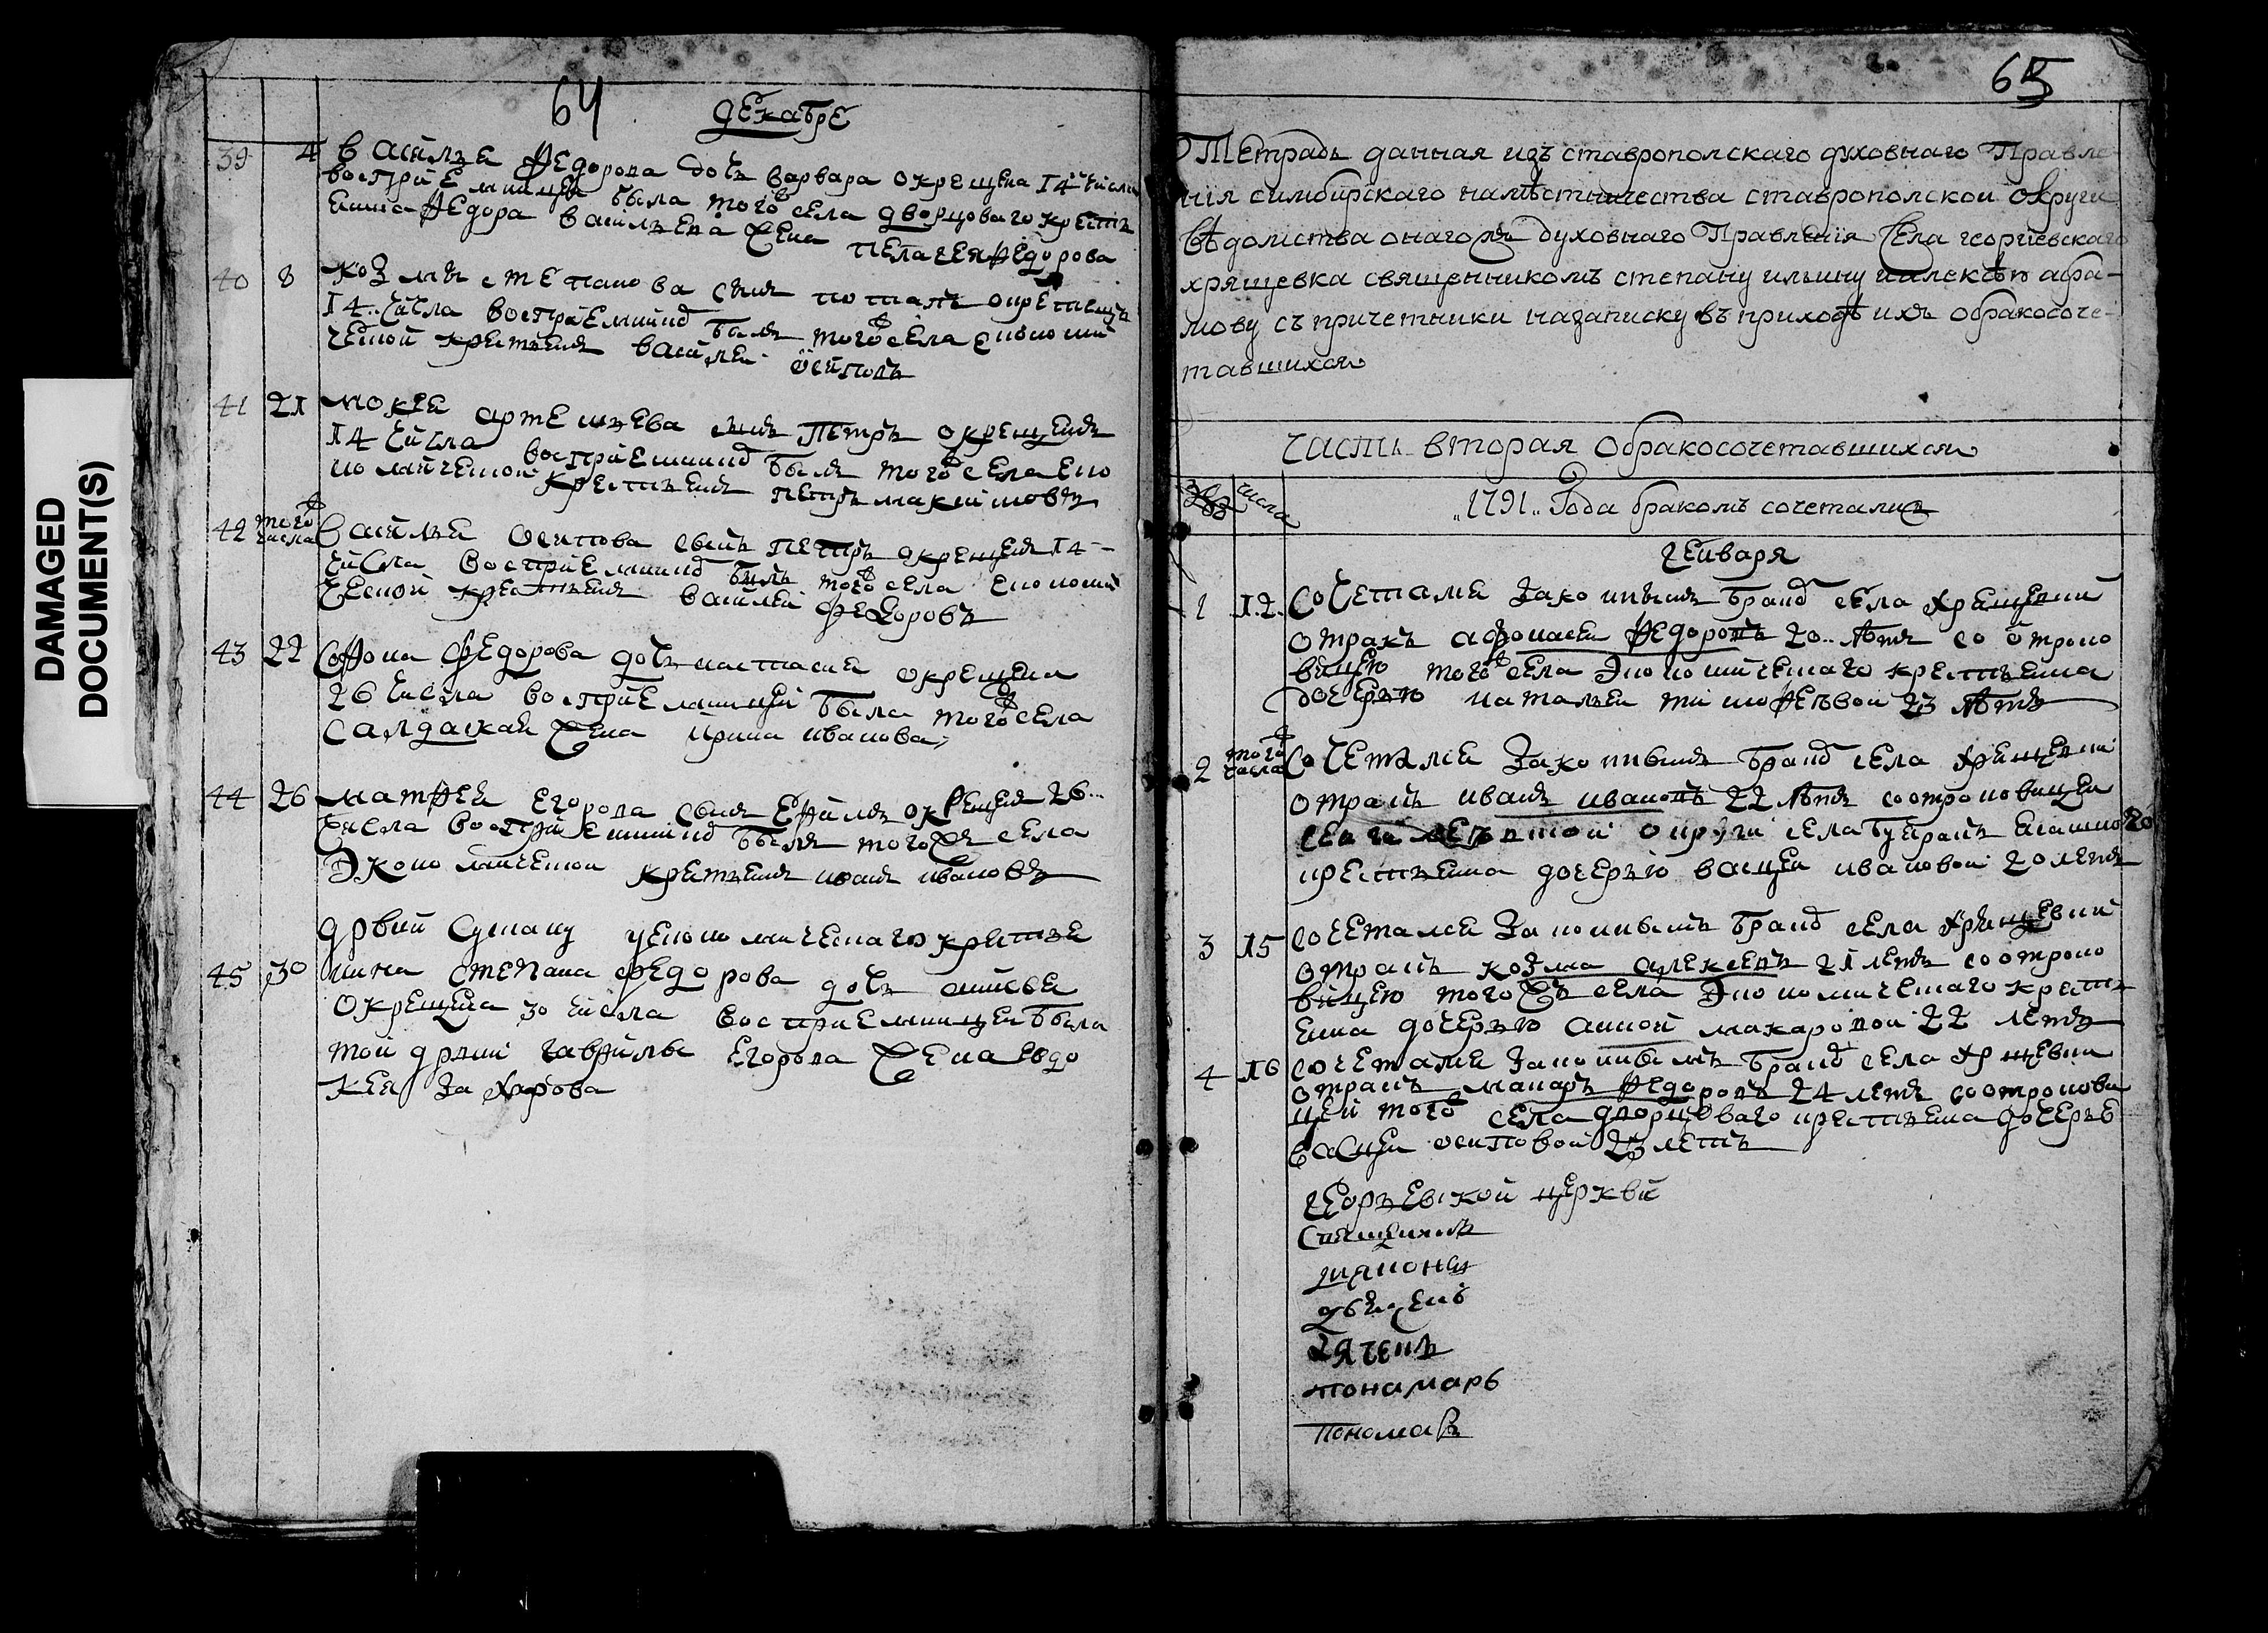 DAMAGED
DOCUMENT(S)
64
декабре
39 4 Василья Федорова дочь варвара окрещена 14 числа
восприемницеи была того ж села дворцоваго крестъ
енина Федора васильева жена пелагея Федорова
40 8 козмы степанова сынъ потапъ окрещенъ
14 числа восприемникъ былъ того ж села економи
ческой крестьенинъ василеи осиповъ
41 21 мокея артемьева сынъ Петръ окрещенъ
14 числа восприемникъ былъ того ж села еко
номической крестьенинъ петръ максимовъ
42 того ж числа Василья осипова сынъ петръ окрещенъ 14
числа восприемникъ былъ того ж села економи
ческой крестьенинъ василеи федоровъ
43 22 софона Федорова дочь настасия окрещена
26 числа восприемницеи была того ж села
салдаская жена ирина иванова
44 26 матфея егорова сынъ окрещенъ 26
числа восприемникъ былъ того ж села
экономической крестьенинъ иванъ ивановъ
крестье
45 30 нина степана федорова дочь
окрещена 30 числа восприемницеи была
тои гаврилы егорова жена евдо
кея захарова
65
Тетрадь данная изъ ставрополскаго духовнаго Правле
ния симбирскаго намѣстничества ставрополской округи
вѣдомства онагожъ духовнаго Правления Села георгиевскаго
хрящевка священникомъ степану ильину иалексѣю абра-
мову съ причетники назаписку въ приходѣ ихъ обракосоче-
тавшихся
Часть вторая обракосочетавшихся
числа
1791 Года бракомъ сочетались
Генваря
1 12 Сочетался законнымъ бракомъ села хрящевки
отрокъ афонасеи Федоровъ 20 лѣтъ со отроко
вицею того ж села экономическаго крестьенина
дочерью натальеи тимофеевой 23 лѣтъ
2 того ж числа Сочетался законнымъ бракомъ села хрящевки
отрокъ иванъ ивановъ 22 лѣтъ соотроковицеи
округи села
крестьенина дочерью ивановои 20 летъ
3 15 сочетался законнымъ бракомъ села хрящевки
отрокъ козма алексеевъ 21 летъ соотроко
вицею того жъ села экономическаго крестъ
енина дочерью анной макаровои 22 летъ
4 16 сочетался законнымъ бракомъ села хрящевки
отрокъ макаръ Федоровъ 24 летъ соотрокови
цеи того ж села дворцоваго крестьенина дочерью
осиповой 23 летъ
георьевской церкви
Священникъ
дьячекъ
пономарь
пономаръ